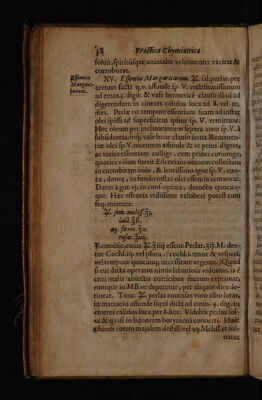 58 Practica Chymiatrica
sedat. Spiritúsque animales vehementer excitat &
corroborat.
Essentia
Margari-
tarum.
XV. Essentia Margaritarum. ℞. sal. perlar. per
acetum facti q.v. affunde sp. V. rectificatissimum
ad emin. 4. digit. & vase hermeticè clauso sind ad
digerendum in cineres calidos loca ad 8. vel 10.
dies. Perlæ eo tempore essentiam suam ad instar
olei spissi ad superficiem ipsius sp. V.
Hoc oleum per inclinationem separa cum sp. V. à
subsidentia, inq; vase bene clauso serva. Remanen-
tiæ olei sp. V. recentem affunde & ut prius digere,
ac toties essentiam collige, cum priori conjunge,
quoties visum fuerit. Essentiam omnem collectam
in cucurbitam inde, & lentissimo igne sp. V. evo-
ca, donec, in fundo instar olei essentia remaneat.
Datur à gut. vj. in confopiura, decocto quocun-
que. Hæc essentia utilissime exhiberi potest cum
seq. mixtura:
℞. sem. meliss. ℥j.
aq. fœnic. ℥x.
rosar. ℥iiij.
F. emulsio, cujus ℞. ℥iiij essent. Perlar. ʒij. M. den-
tur Cochl. iij. vel plura, (cochl. 1. mane & vesperi,
vel tempore quocunq; necessitate urgente.) Quod
si cui dicta operatio nimis laboriosa videatur, is è
citri malis abjectis corticibus succum exprimat,
eumque in MB. ter depuretur, per aliquot dies de-
tineat. Tunc ℞. perlas contusas vino albo lotas,
in matracio affunde succi dicti ad emin. 4. dig. in
cineres calidos loca per x. hor. Videbis perlas sol-
vi & quasi in liquorem butyraceum converti. Huic
affunde totem majalem destill. vel aq. Meliss. ut sol-
vatur